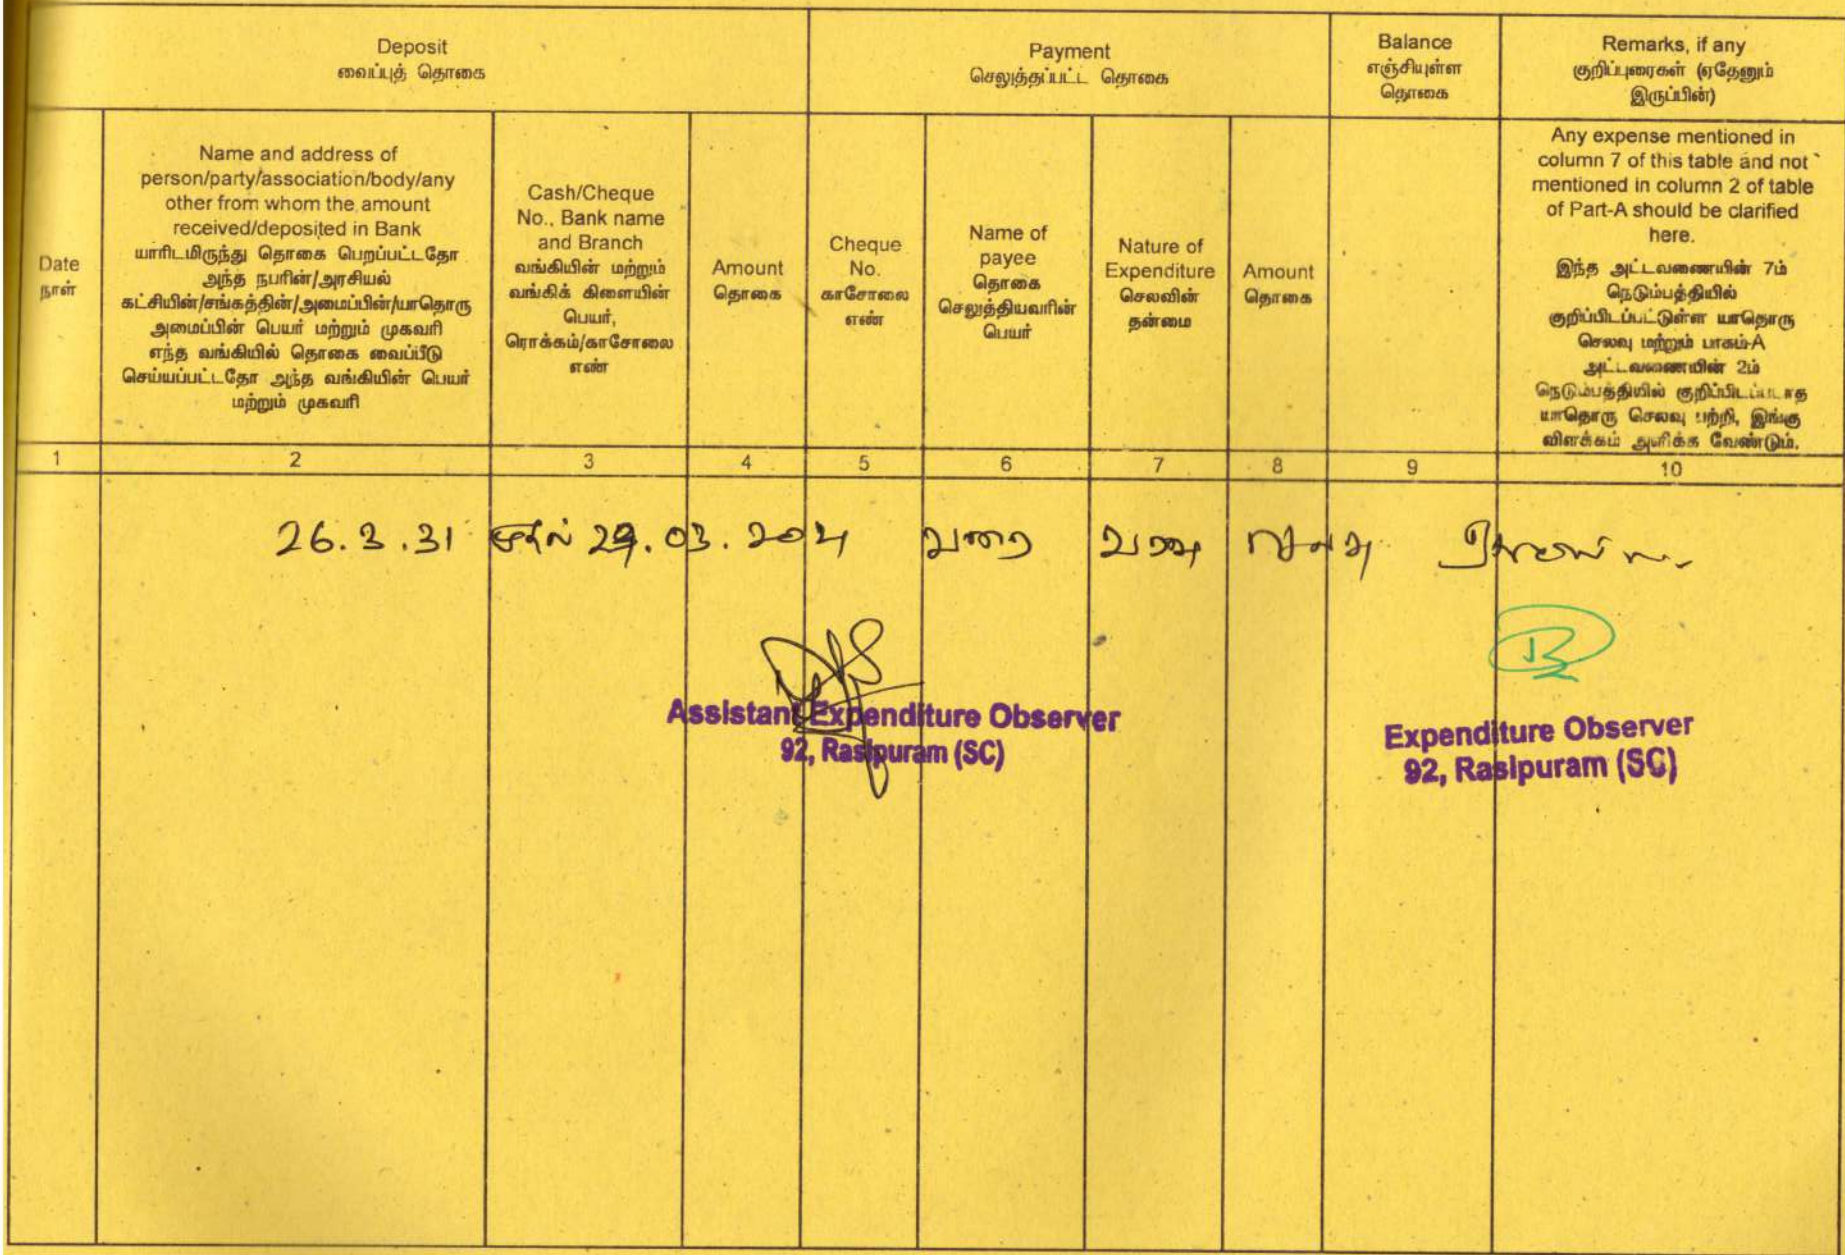 Deposit
வைப்புத் தொகை
Payment
செலுத்தப்பட்ட தொகை
Balance
எஞ்சியுள்ள
தொகை
Remarks, if any
குறிப்புரைகள் (ஏதேனும்
இருப்பின்)
Date
நாள்
Name and address of
person/party/association/body/any
other from whom the amount
received/deposited in Bank
யாரிடமிருந்து தொகை பெறப்பட்டதோ
அந்த நபரின்/அரசியல்
கட்சியின்/சங்கத்தின்/அமைப்பின்/யாதொரு
அமைப்பின் பெயர் மற்றும் முகவரி
எந்த வங்கியில் தொகை வைப்பீடு
செய்யப்பட்டதோ அந்த வங்கியின் பெயர்
மற்றும் முகவரி
Cash/Cheque
No., Bank name
and Branch
வங்கியின் மற்றும்
வங்கிக் கிளையின்
பெயர்,
ரொக்கம்/காசோலை
எண்
Amount
தொகை
Cheque
No.
காசோலை
எண்
Name of
payee
தொகை
செலுத்தியவரின்
பெயர்
Nature of
Expenditure
செலவின்
தன்மை
Amount
தொகை
Any expense mentioned in
column 7 of this table and not
mentioned in column 2 of table
of Part-A should be clarified
here.
இந்த அட்டவணையின் 7ம்
நெடும்பத்தியில்
குறிப்பிடப்பட்டுள்ள யாதொரு
செலவு மற்றும் பாகம்-A
அட்டவணையின் 2ம்
நெடும்பத்தியில் குறிப்பிடப்படாத
யாதொரு செலவு பற்றி, இங்கு
விளக்கம் அளிக்க வேண்டும்.
1 2 3 4 5 6 7 8 9 10
26.3.31 முதல் 29.03.2021 வரை வரவு
Assistant Expenditure Observer
92, Rasipuram (SC)
Expenditure Observer
92, Rasipuram (SC)